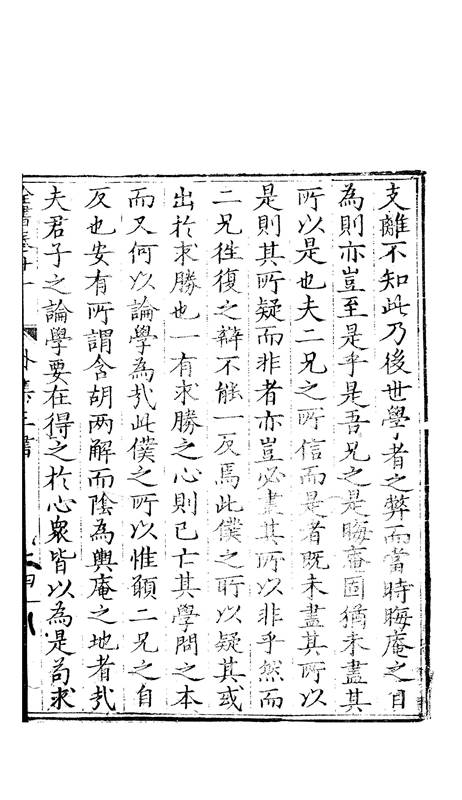 支離不知此乃後世學者之弊而當時晦庵之自
為則亦豈至是乎是吾兄之是晦庵固猶未盡其
所以是也夫二兄之所信而是者既未盡其所以
是則其所疑而非者亦豈必盡其所以非乎然而
二兄徃復之辯不能一反焉此僕之所以疑其或
出於求勝也一有求勝之心則已亡其學問之本
而又何以論學為㢤此僕之所以惟願二兄之自
反也安有所謂含胡两解而陰為輿庵之地者㢤
夫君子之論學要在得之於心衆皆以為是茍求
全書卷廿一 外集三書